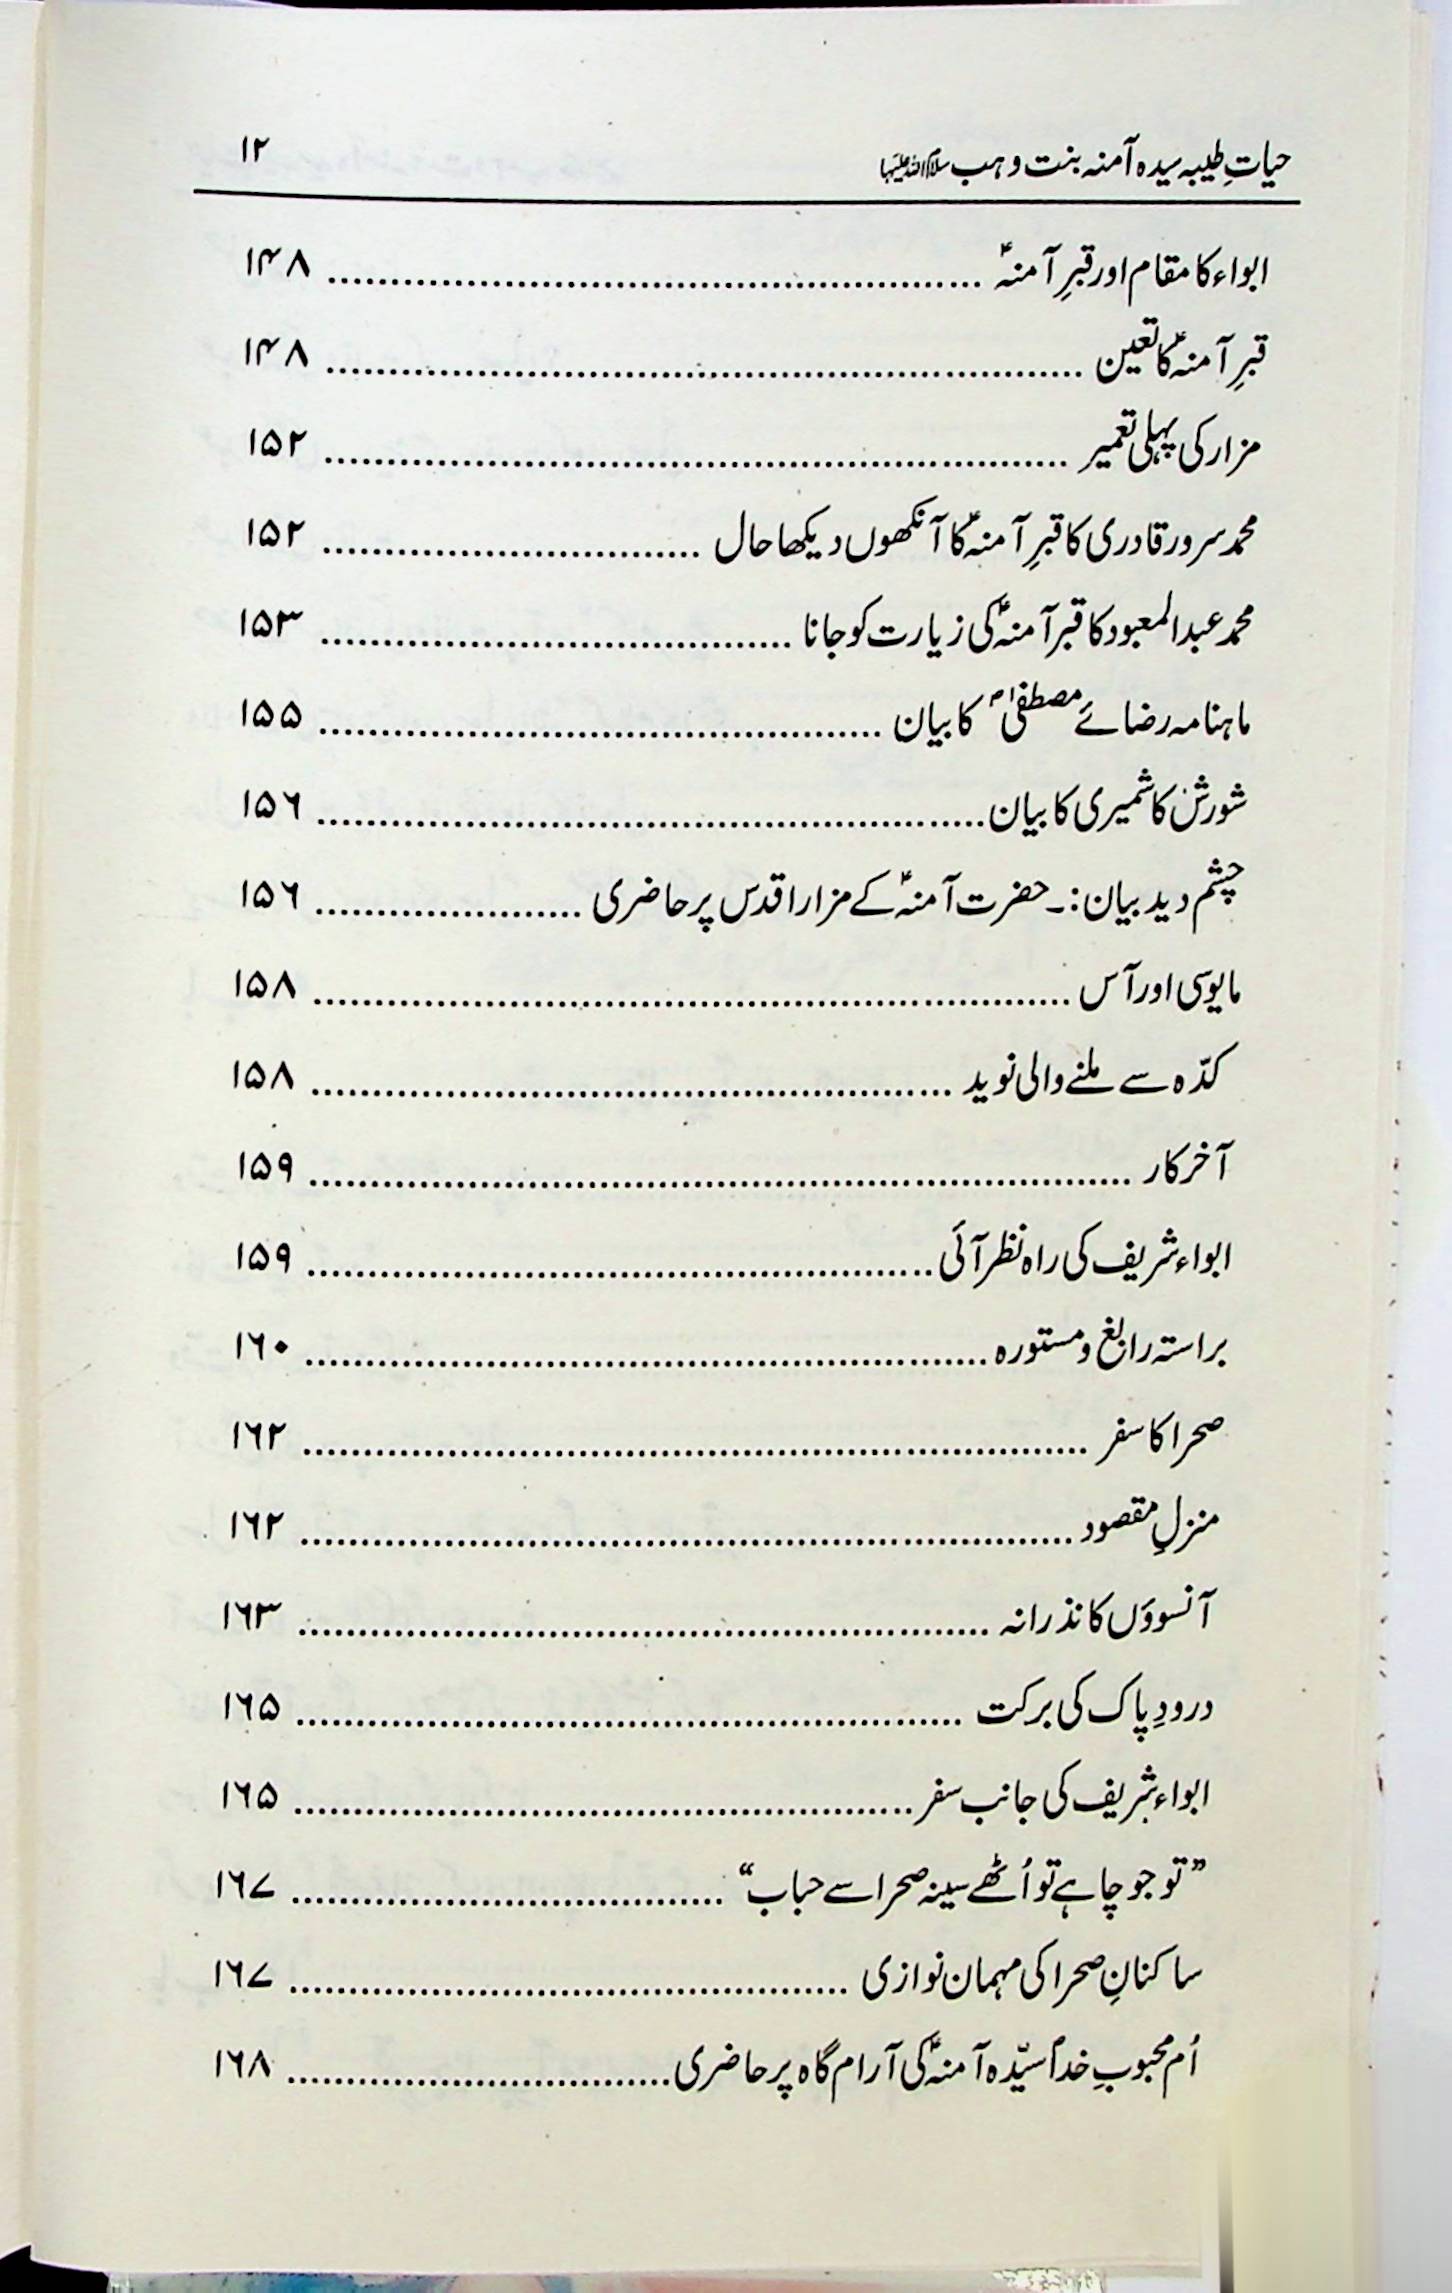 حیاتِ طیبہ سیدہ آمنہ بنت وہب سلام اللہ علیہا ۱۲
ابواء کا مقام اور قبرِ آمنہؑ ........ ۱۴۸
قبرِ آمنہؑ کا تعین ........ ۱۴۸
مزار کی پہلی تعمیر ........ ۱۵۲
محمد سرور قادری کا قبرِ آمنہؑ کا آنکھوں دیکھا حال ........ ۱۵۲
محمد عبدالمعبود کا قبر آمنہؑ کی زیارت کو جانا ........ ۱۵۳
ماہنامہ رضائے مصطفیٰؐ کا بیان ........ ۱۵۵
شورش کاشمیری کا بیان ........ ۱۵۶
چشم دید بیان:۔ حضرت آمنہؑ کے مزار اقدس پر حاضری ........ ۱۵۶
مایوسی اور آس ........ ۱۵۸
کدّہ سے ملنے والی نوید ........ ۱۵۸
آخرکار ........ ۱۵۹
ابواء شریف کی راہ نظر آئی ........ ۱۵۹
براستہ رابغ و مستورہ ........ ۱۶۰
صحرا کا سفر ........ ۱۶۲
منزلِ مقصود ........ ۱۶۲
آنسوؤں کا نذرانہ ........ ۱۶۳
درودِ پاک کی برکت ........ ۱۶۵
ابواء شریف کی جانب سفر ........ ۱۶۵
”تو جو چاہے تو اُٹھے سینہ صحرا سے حباب“ ........ ۱۶۷
ساکنانِ صحرا کی مہمان نوازی ........ ۱۶۷
اُم محبوبِ خداؐ سیّدہ آمنہؑ کی آرام گاہ پر حاضری ........ ۱۶۸